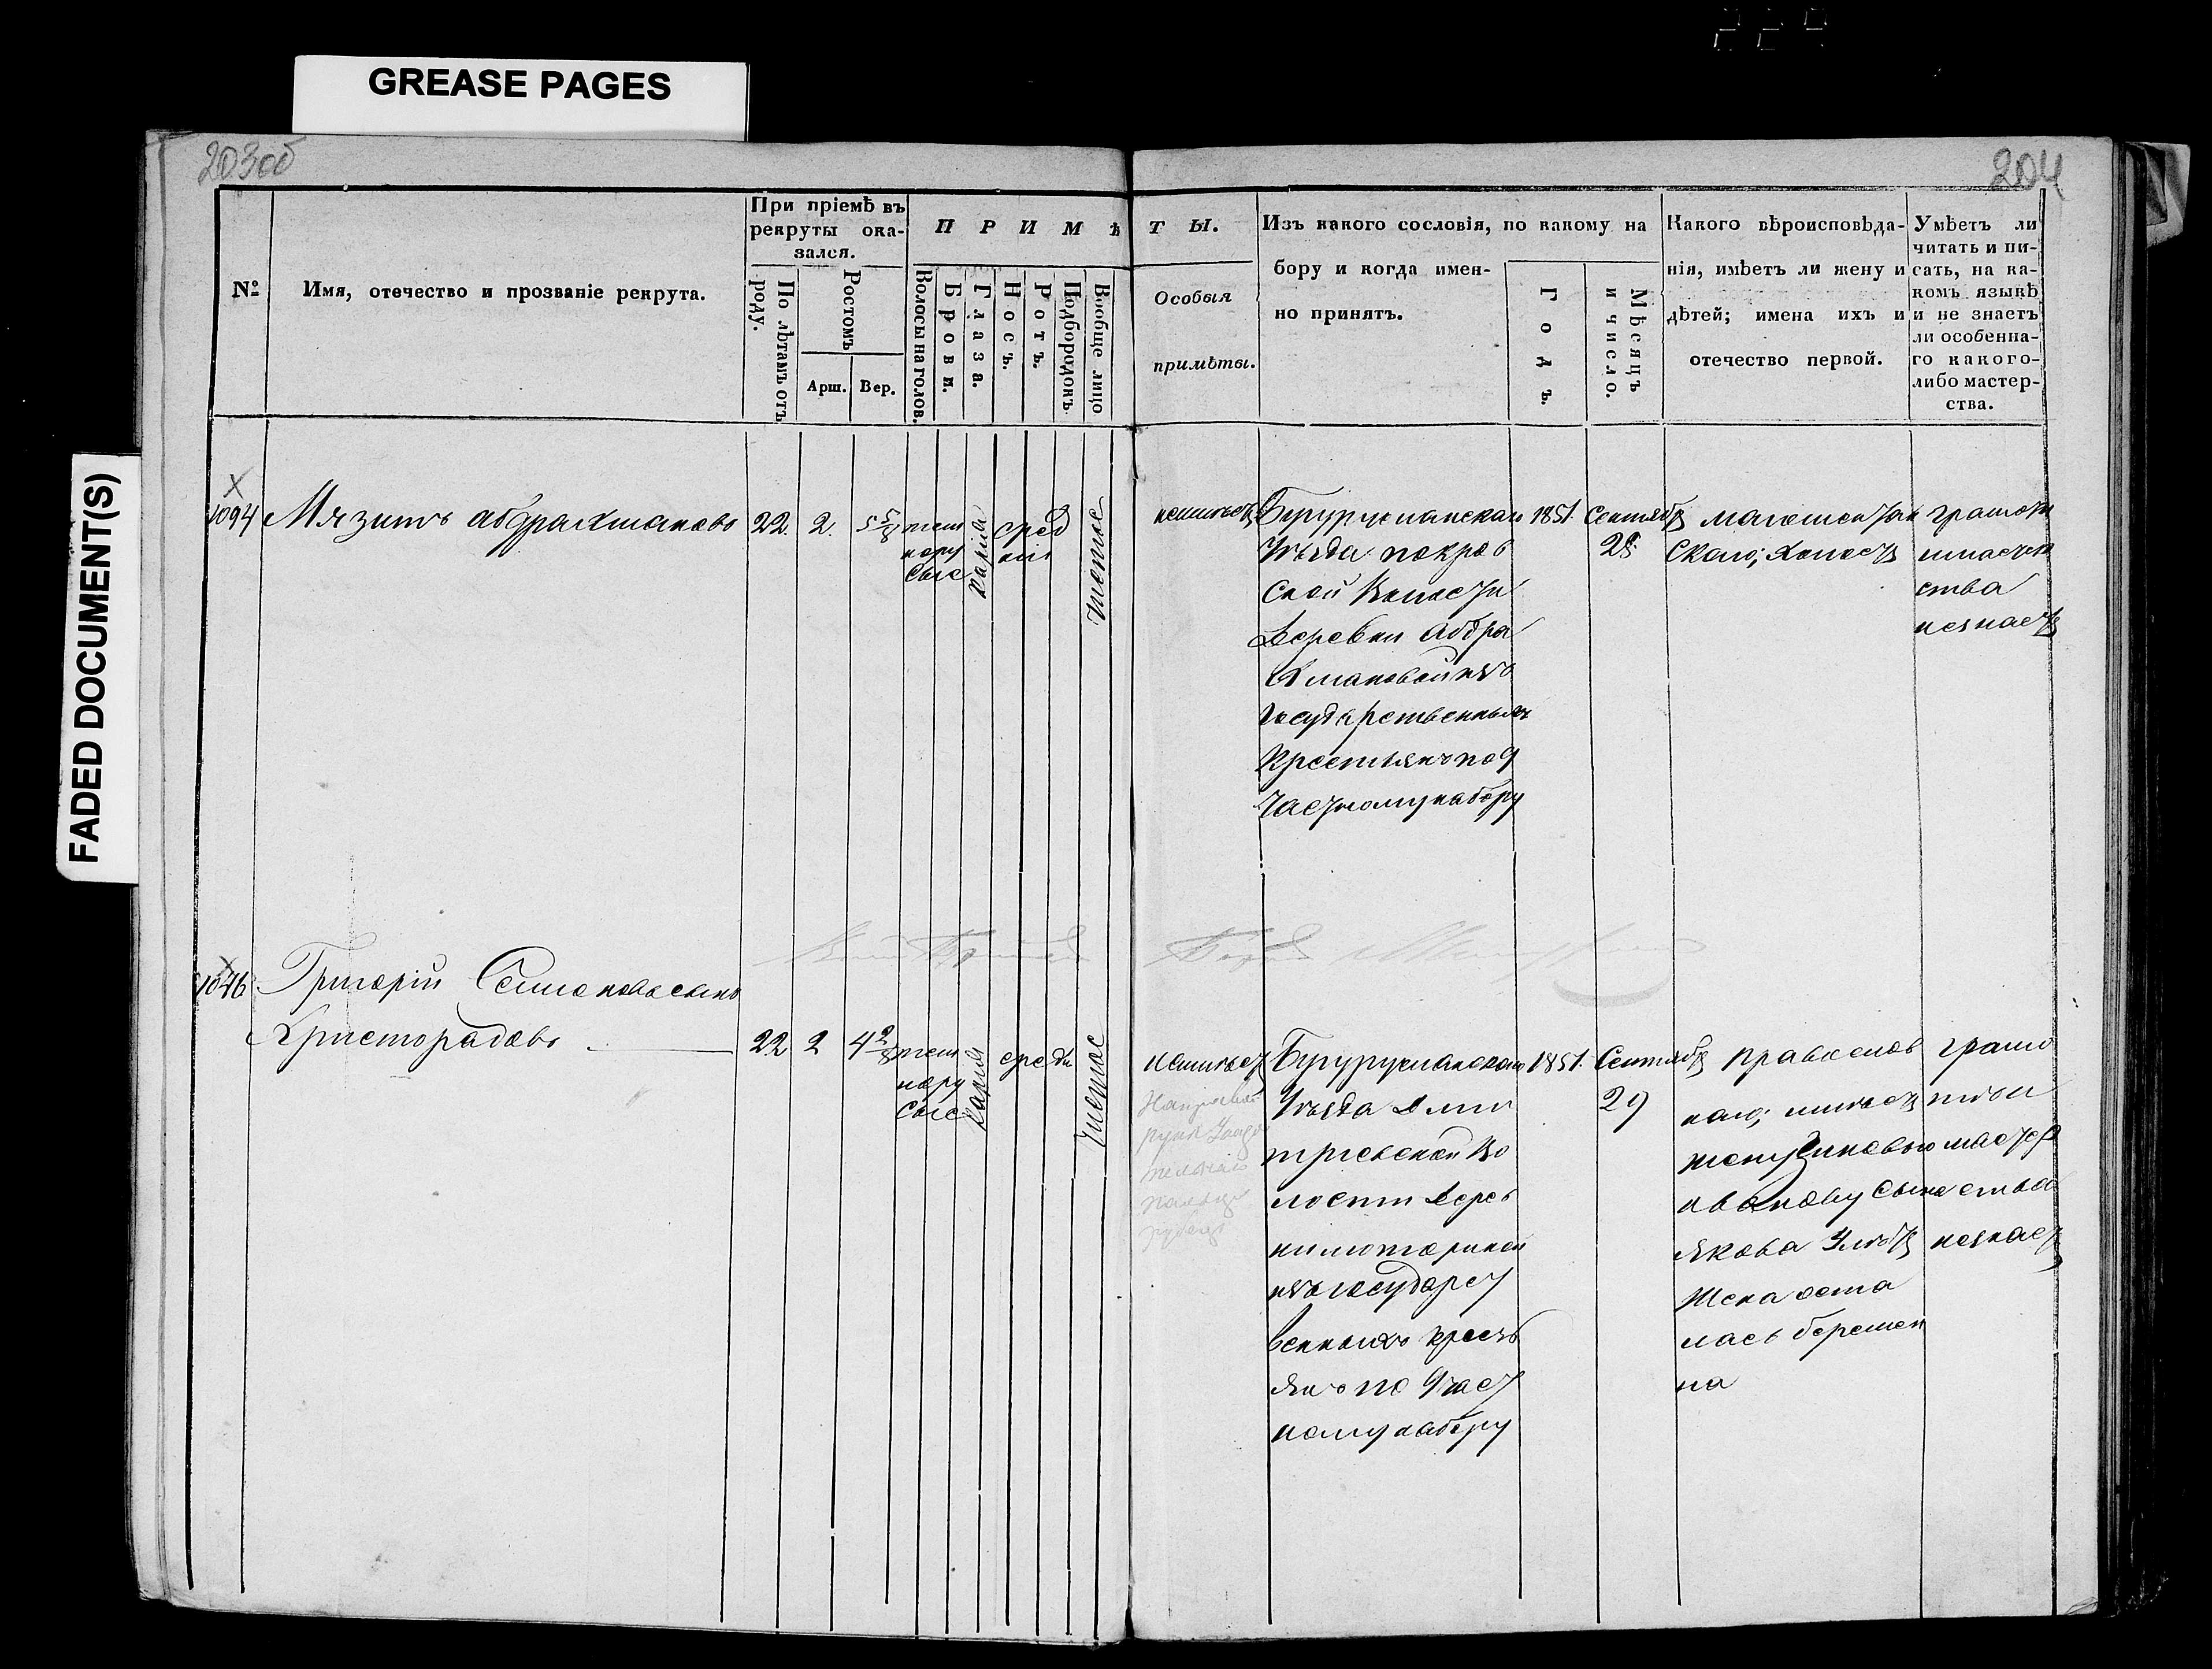 GREASE PAGES
FADED DOCUMENT(S)
203об
204
№
Имя, отечество и прозваніе рекрута.
При пріемѣ въ
рекруты ока-
зался.
По лѣтамъ отъ
роду.
Ростомъ
Арш.
Вер.
ПРИМѢ
ТЫ.
Волосы на голов.
Брови.
Глаза.
Носъ.
Ротъ.
Подбородокъ
Вообще лицо
Особыя
примѣты.
Изъ какого сословія, по какому на
бору и когда имен-
но принятъ.
Годъ.
Мѣсяцъ
и число.
Какого вѣроисповѣда-
нія, имѣетъ ли жену и
дѣтей; имена ихъ и
отечество первой.
Умѣетъ ли
читать и пи-
сать, на ка-
комъ языкѣ
и не знаетъ
ли особенна-
го какого-
либо мастер-
ства.
1094
Мязитъ абдрахмановъ
22.
2.
5 5/8
темн
нору
сые
каріа
сред
ніе
чистое
неимѣетъ
Бугурусланскаго
Уѣзда покров
ской Волости
Деревни Абдра
хмановой изъ
государственныхъ
Крестьянъ по 9
Частному набору
1851.
Сентябр
28.
магометан
скаго; холостъ
грамоти
имастер
ства
незнаетъ
1046
Григорій Семеновъ сынъ
Христорадовъ
22
2
4 2/8
темн
нору
сые
каріа
средн
чистое
неимѣетъ
Бугурусланскаго
Уѣзда Дми
тріевской Во
лости Дерев
изъ государст
венныхъ кресть
янъ по 9 част
ному набору
1851.
Сентябр
29
православ
наго; имѣетъ
жену Зиновью
иванову сына
Якова 3 лѣтъ
Жена оста
лась беремен
на
грамо
тѣ и
мастер
ства
незнаетъ